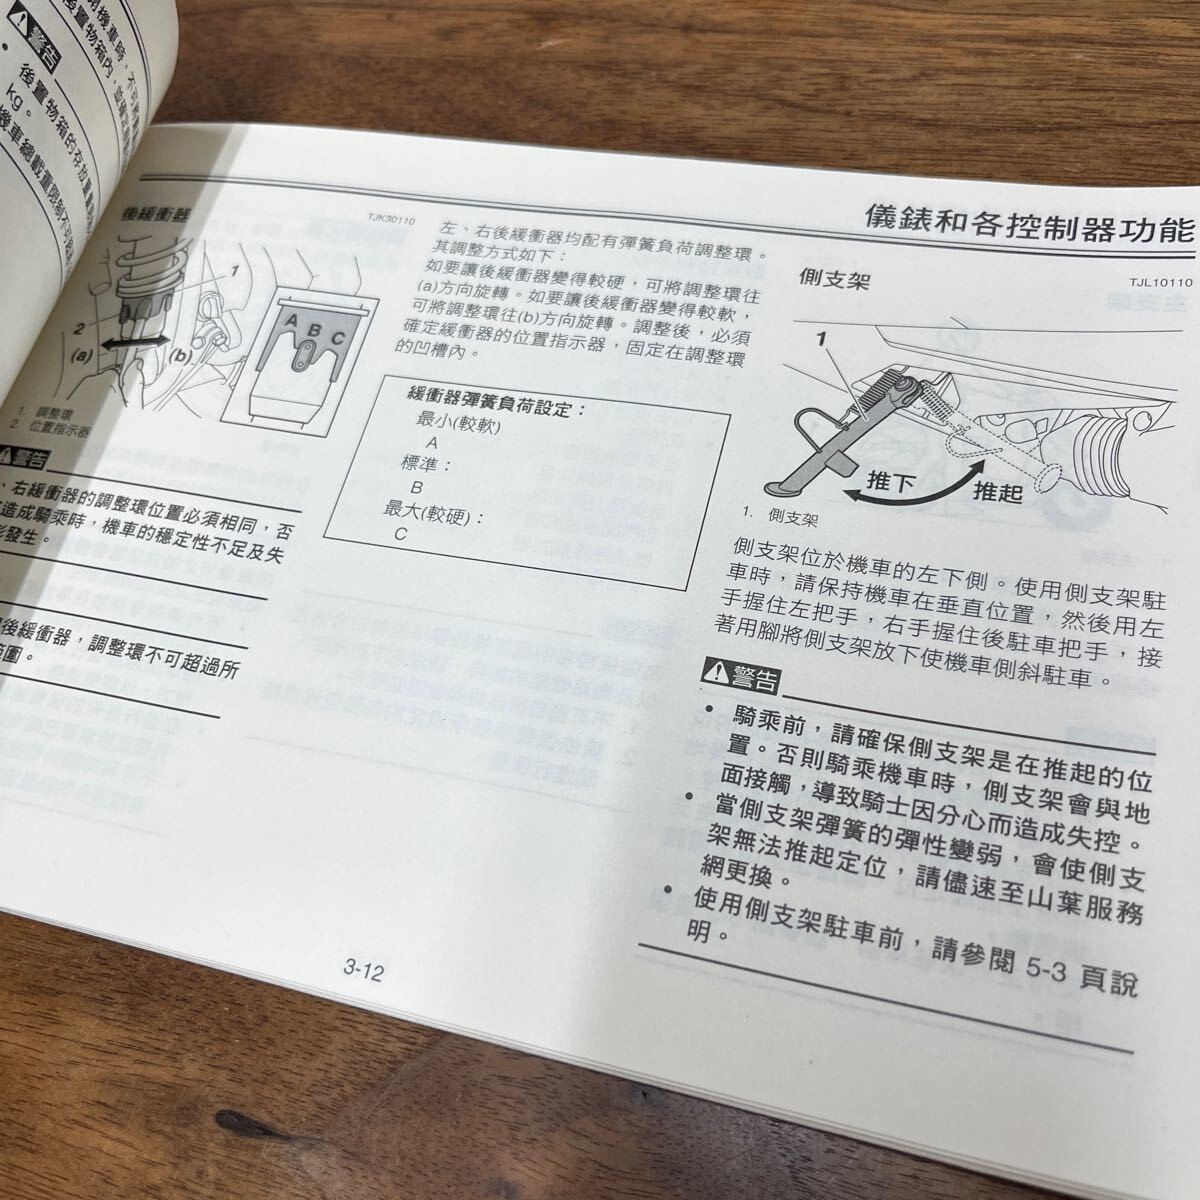 用機車時，不可
後置物箱內，
警告
• 後置物箱的存放重量
kg。
機車總載重限制不可超
儀錶和各控制器功能
後緩衝器
TJK30110
1
2
(a)
(b)
A
B
C
1. 調整環
2. 位置指示器
警告
、右緩衝器的調整環位置必須相同，否
造成騎乘時，機車的穩定性不足及失
發生。
後緩衝器，調整環不可超過所
範圍。
左、右後緩衝器均配有彈簧負荷調整環。
其調整方式如下：
如要讓後緩衝器變得較硬，可將調整環往
(a)方向旋轉。如要讓後緩衝器變得較軟，
可將調整環往(b)方向旋轉。調整後，必須
確定緩衝器的位置指示器，固定在調整環
的凹槽內。
緩衝器彈簧負荷設定：
最小(較軟)
A
標準：
B
最大(較硬)：
C
側支架
TJL10110
1
推下
推起
1. 側支架
側支架位於機車的左下側。使用側支架駐
車時，請保持機車在垂直位置，然後用左
手握住左把手，右手握住後駐車把手，接
著用腳將側支架放下使機車側斜駐車。
警告
• 騎乘前，請確保側支架是在推起的位
置。否則騎乘機車時，側支架會與地
面接觸，導致騎士因分心而造成失控。
• 當側支架彈簧的彈性變弱，會使側支
架無法推起定位，請儘速至山葉服務
網更換。
• 使用側支架駐車前，請參閱 5-3 頁說
明。
3-12